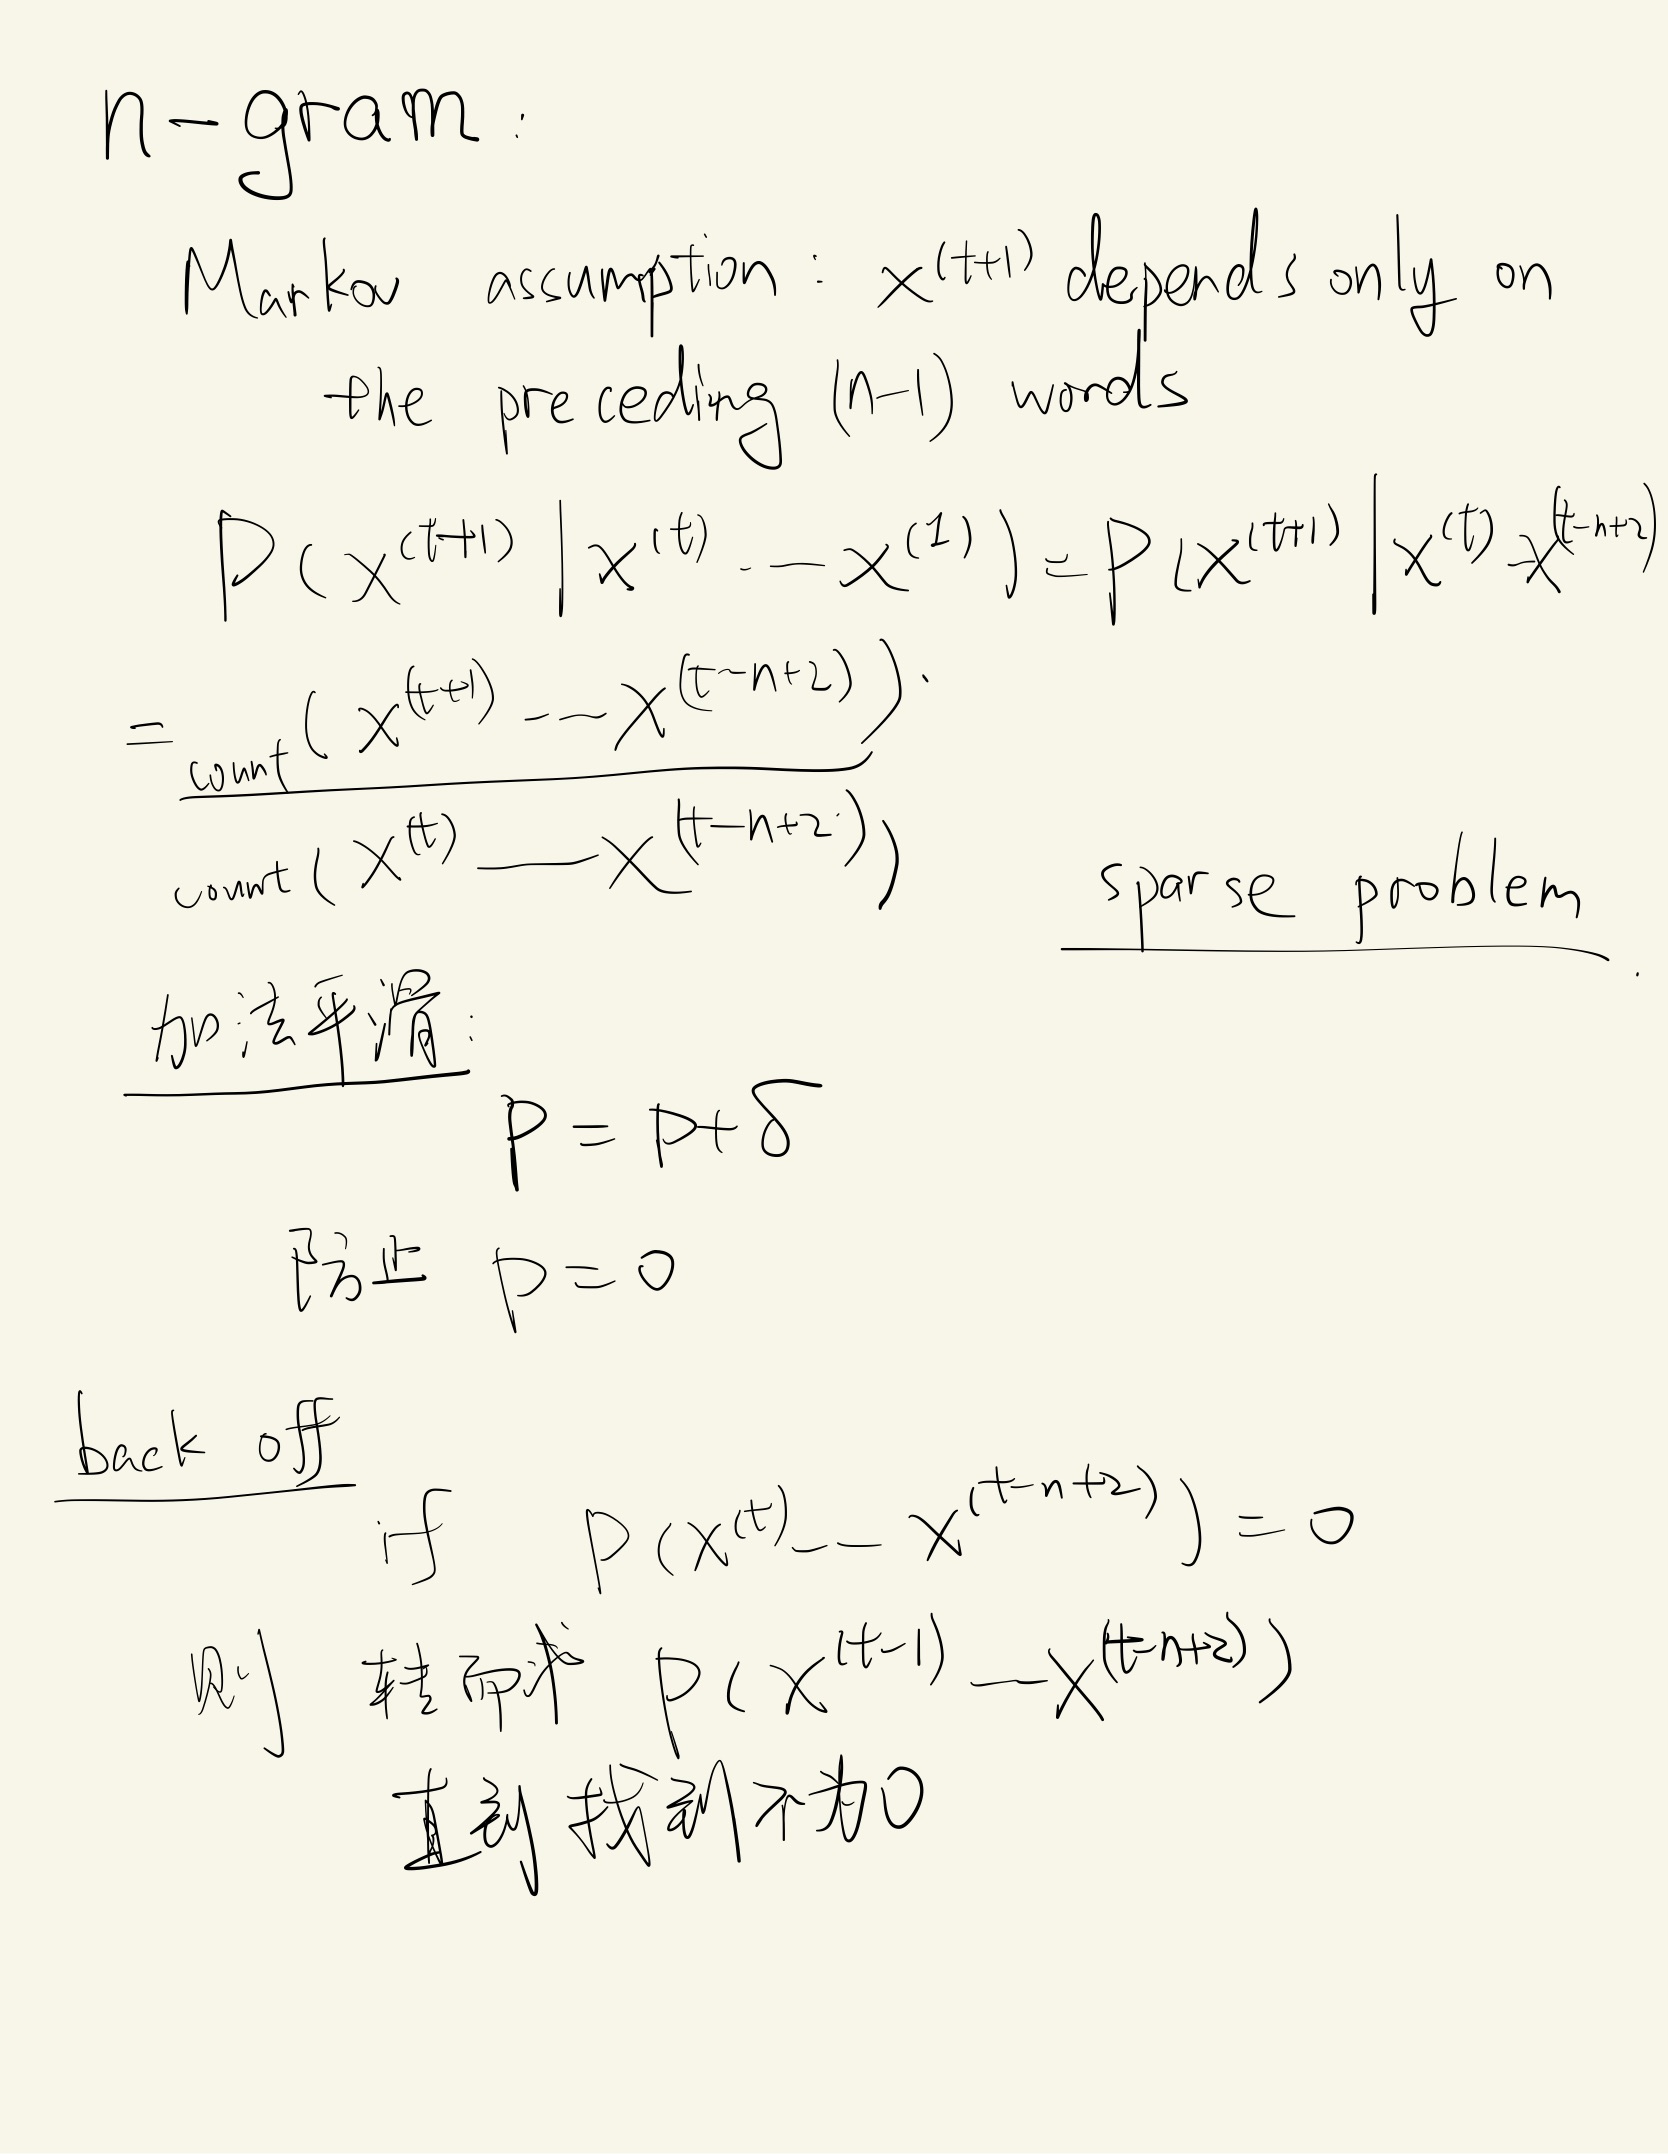 n-gram:
Markov assumption: x^(t+1) depends only on
the preceding (n-1) words
P(x^(t+1) | x^(t) --- x^(1)) = P(x^(t+1) | x^(t) - x^(t-n+2))
= count(x^(t+1) --- x^(t-n+2))
count(x^(t) — x^(t-n+2))
sparse problem
加法平滑:
P = p+δ
防止 p=0
back off
if p(x^(t) -- x^(t-n+2)) = 0
则 转而求 p(x^(t-1) — x^(t-n+2))
直到找到不为0